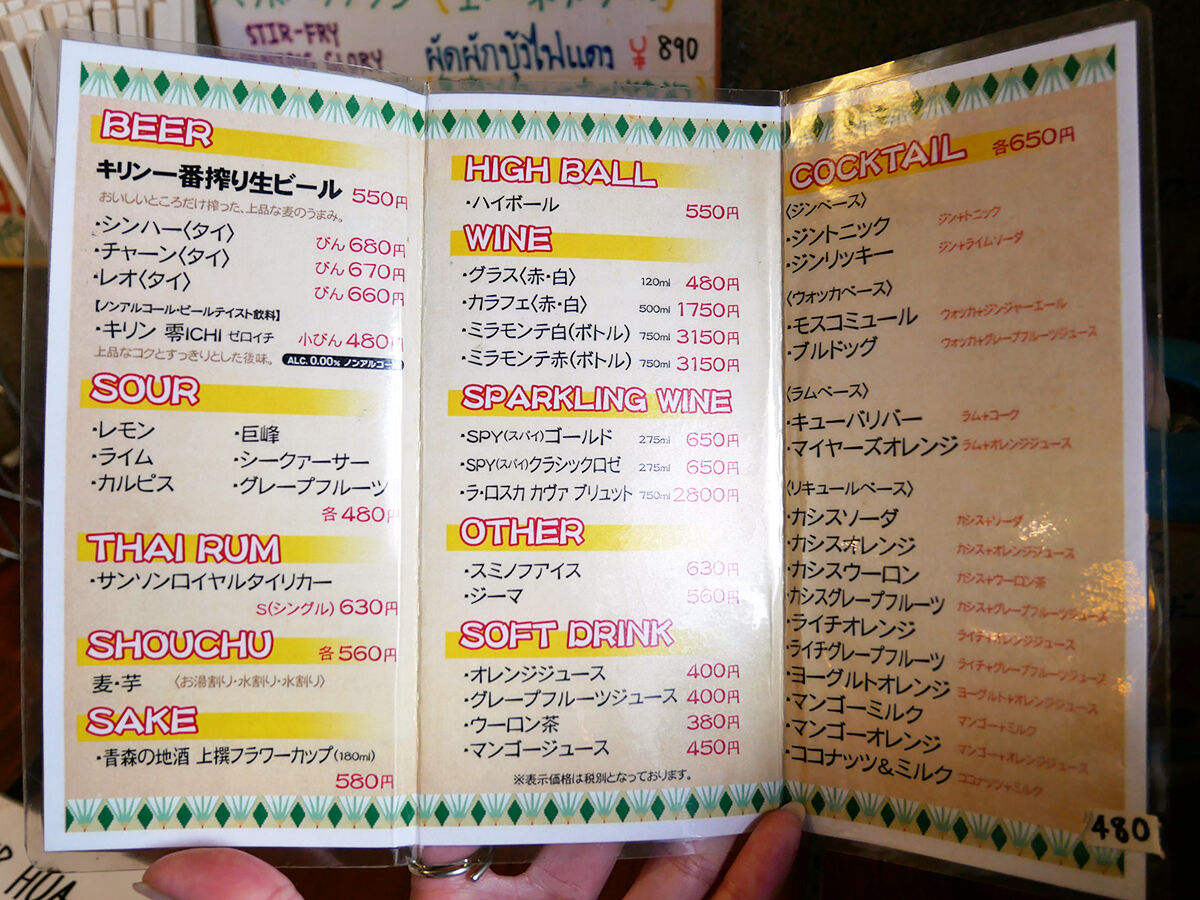 STIR-FRY
MORNING GLORY
ผัดผักบุ้งไฟแดง ¥890
BEER
キリン一番搾り生ビール 550円
おいしいところだけ搾った、上品な麦のうまみ。
・シンハー〈タイ〉 びん 680円
・チャーン〈タイ〉 びん 670円
・レオ〈タイ〉 びん 660円
【ノンアルコール・ビールテイスト飲料】
・キリン 零ICHI ゼロイチ 小びん 480円
上品なコクとすっきりとした後味。 ALC.0.00% ノンアルコール
SOUR
・レモン ・巨峰
・ライム ・シークァーサー
・カルピス ・グレープフルーツ
各480円
THAI RUM
・サンソンロイヤルタイリカー
S(シングル) 630円
SHOUCHU 各560円
麦・芋 〈お湯割り・水割り・水割り〉
SAKE
・青森の地酒 上撰フラワーカップ(180ml)
580円
HIGH BALL
・ハイボール 550円
WINE
・グラス〈赤・白〉 120ml 480円
・カラフェ〈赤・白〉 500ml 1750円
・ミラモンテ白(ボトル) 750ml 3150円
・ミラモンテ赤(ボトル) 750ml 3150円
SPARKLING WINE
・SPY(スパイ)ゴールド 275ml 650円
・SPY(スパイ)クラシックロゼ 275ml 650円
・ラ・ロスカ カヴァ ブリュット 750ml 2800円
OTHER
・スミノフアイス 630円
・ジーマ 560円
SOFT DRINK
・オレンジジュース 400円
・グレープフルーツジュース 400円
・ウーロン茶 380円
・マンゴージュース 450円
※表示価格は税別となっております。
COCKTAIL 各650円
〈ジンベース〉
・ジントニック ジン+トニック
・ジンリッキー ジン+ライムソーダ
〈ウォッカベース〉
・モスコミュール ウォッカ+ジンジャーエール
・ブルドッグ ウォッカ+グレープフルーツジュース
〈ラムベース〉
・キューバリバー ラム+コーク
・マイヤーズオレンジ ラム+オレンジジュース
〈リキュールベース〉
・カシスソーダ カシス+ソーダ
・カシスオレンジ カシス+オレンジジュース
・カシスウーロン カシス+ウーロン茶
・カシスグレープフルーツ カシス+グレープフルーツジュース
・ライチオレンジ ライチ+オレンジジュース
・ライチグレープフルーツ ライチ+グレープフルーツジュース
・ヨーグルトオレンジ ヨーグルト+オレンジジュース
・マンゴーミルク マンゴー+ミルク
・マンゴーオレンジ マンゴー+オレンジジュース
・ココナッツ&ミルク ココナッツ+ミルク
480
HUA